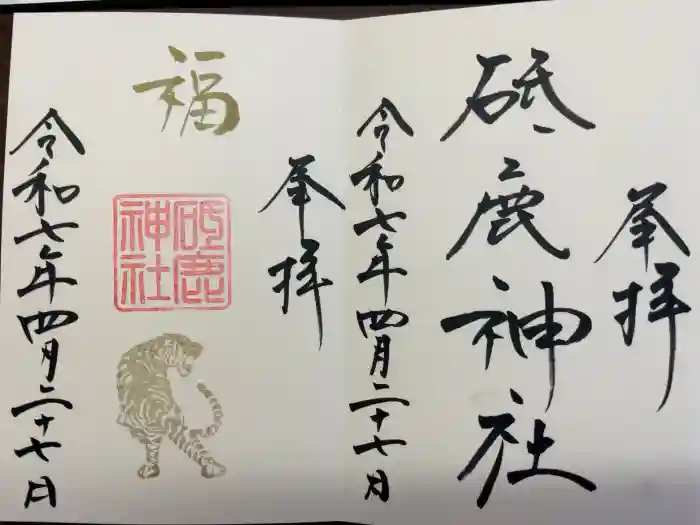 奉拝
砥鹿神社
令和七年四月二十七日
奉拝
福
砥鹿
神社
令和七年四月二十七日